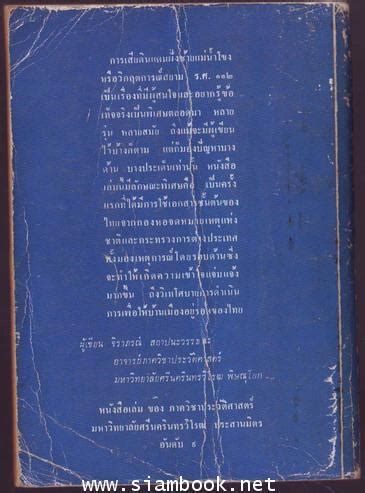 การเสียดินแดนฝั่งซ้ายแม่น้ำโขง
หรือวิกฤตการณ์สยาม ร.ศ. ๑๑๒
เป็นเรื่องที่มีผู้สนใจและอยากรู้ข้อ
เท็จจริงเป็นพิเศษตลอดมา หลาย
รุ่น หลายสมัย ถึงแม้จะมีผู้เขียน
ไว้บ้างก็ตาม แต่ก็มองปัญหาบาง
ด้าน บางประเด็นเท่านั้น หนังสือ
เล่มนี้มีลักษณะพิเศษคือ เป็นครั้ง
แรกที่ได้มีการใช้เอกสารชั้นต้นของ
ไทยจากกองหอจดหมายเหตุแห่ง
ชาติและกระทรวงการต่างประเทศ
ทั้งมองเหตุการณ์โดยรอบด้านซึ่ง
จะทำให้เกิดความเข้าใจแจ่มแจ้ง
มากขึ้น ถึงวิเทโศบายการดำเนิน
การเพื่อให้บ้านเมืองอยู่รอดของไทย
ผู้เขียน จิราภรณ์ สถาปนะวรรธนะ
อาจารย์ภาควิชาประวัติศาสตร์
มหาวิทยาลัยศรีนครินทรวิโรฒ พิษณุโลก
หนังสือเล่ม ของ ภาควิชาประวัติศาสตร์
มหาวิทยาลัยศรีนครินทรวิโรฒ ประสานมิตร
อันดับ ๙
www.siambook.net